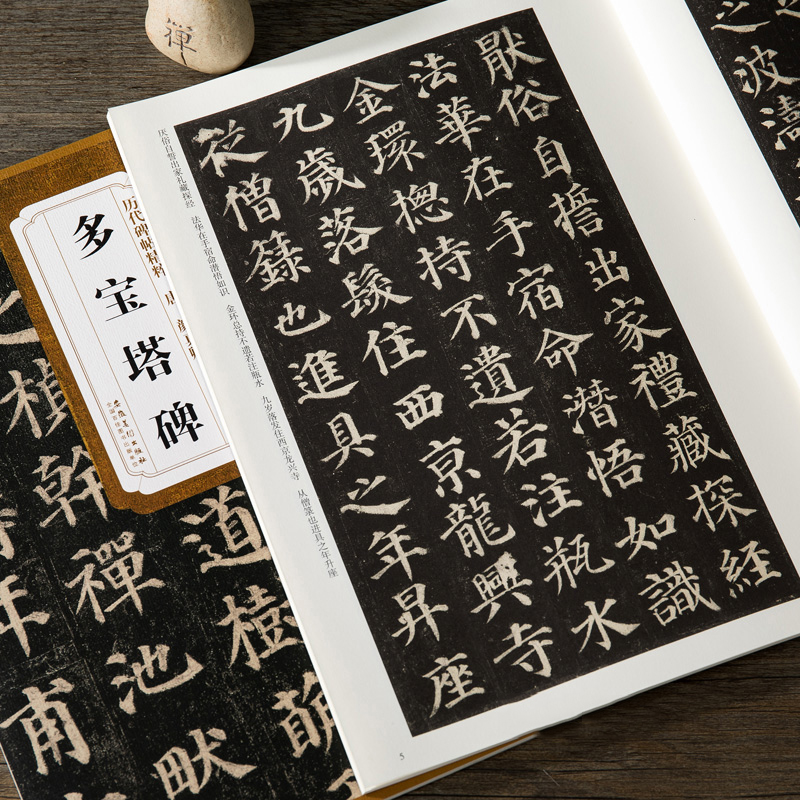 禪
之波濤
厭俗自誓出家禮藏探經
法華在手宿命潛悟如識
金環揔持不遺若注瓶水
九歲落髮住西京龍興寺
從僧籙也進具之年昇座
厌俗自誓出家礼藏探经 法华在手宿命潜悟如识 金环总持不遗若注瓶水 九岁落发住西京龙兴寺 从僧箓也进具之年升座
5
历代碑帖精粹
多宝塔碑
安徽美术出版社
全国百佳图书出版单位
道樹萌
禎幹禪池畎
年甫